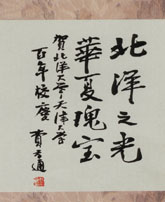 北洋之光
華夏瑰宝
賀北洋大学天津大学
百年校慶
費孝通